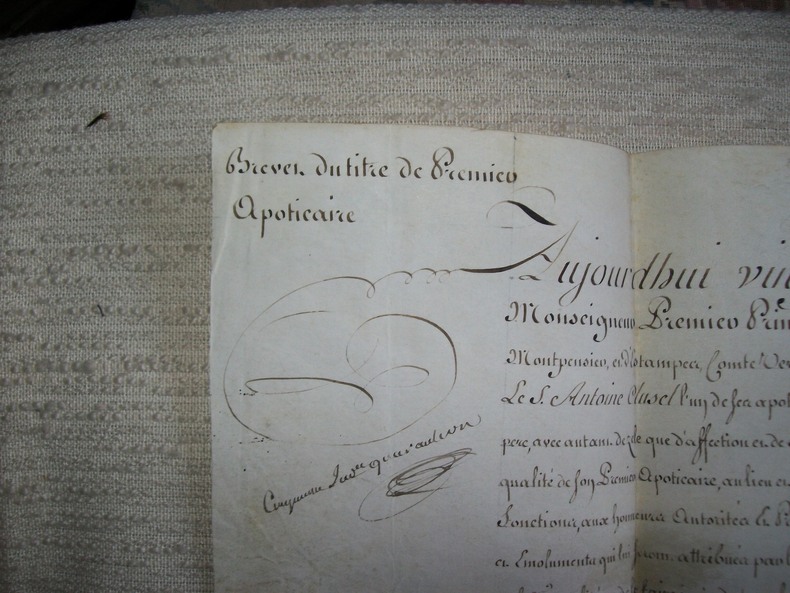 Brevet du titre de Premier
Apoticaire
Aujourdhui vin
Monseigneur Premier Prin
Montpensier, et d'Estampes, Comte de Ver
Le S. Antoine Clusel l'un de ses apot
pere, avec autant de zele que d'affection et de
qualité de son Premier Apoticaire, au lieu et
fonctions, aux honneurs Autorités et Pr
et Emoluments qui lui sont attribués par l